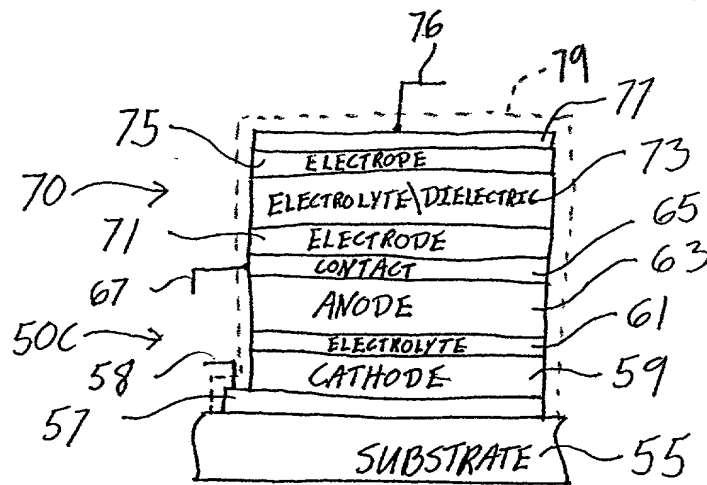 76
79
77
75 ELECTRODE
70 ELECTROLYTE\DIELECTRIC 73
71 ELECTRODE 65
67 CONTACT 63
ANODE
50C ELECTROLYTE 61
58 CATHODE 59
57
SUBSTRATE 55